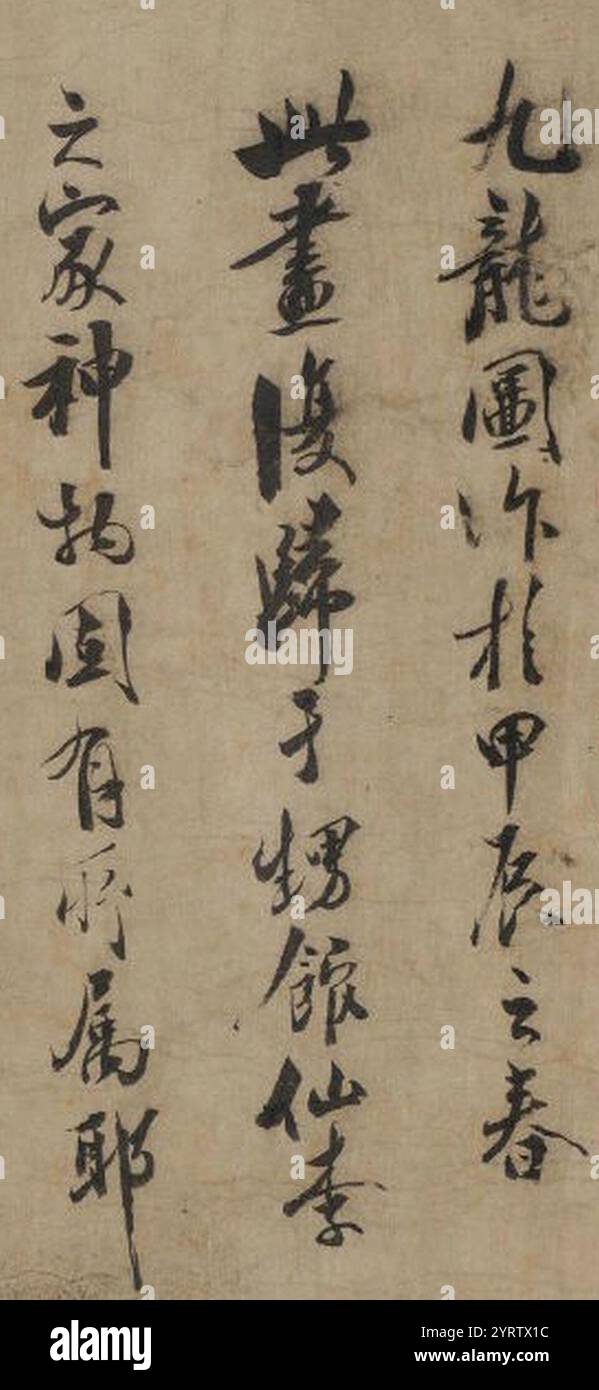 九龍圖作於甲辰之春
此畫復歸于甥館仙李
之家神物固有所属耶
a
alamy
Image ID: 2YRTX1C
www.alamy.com